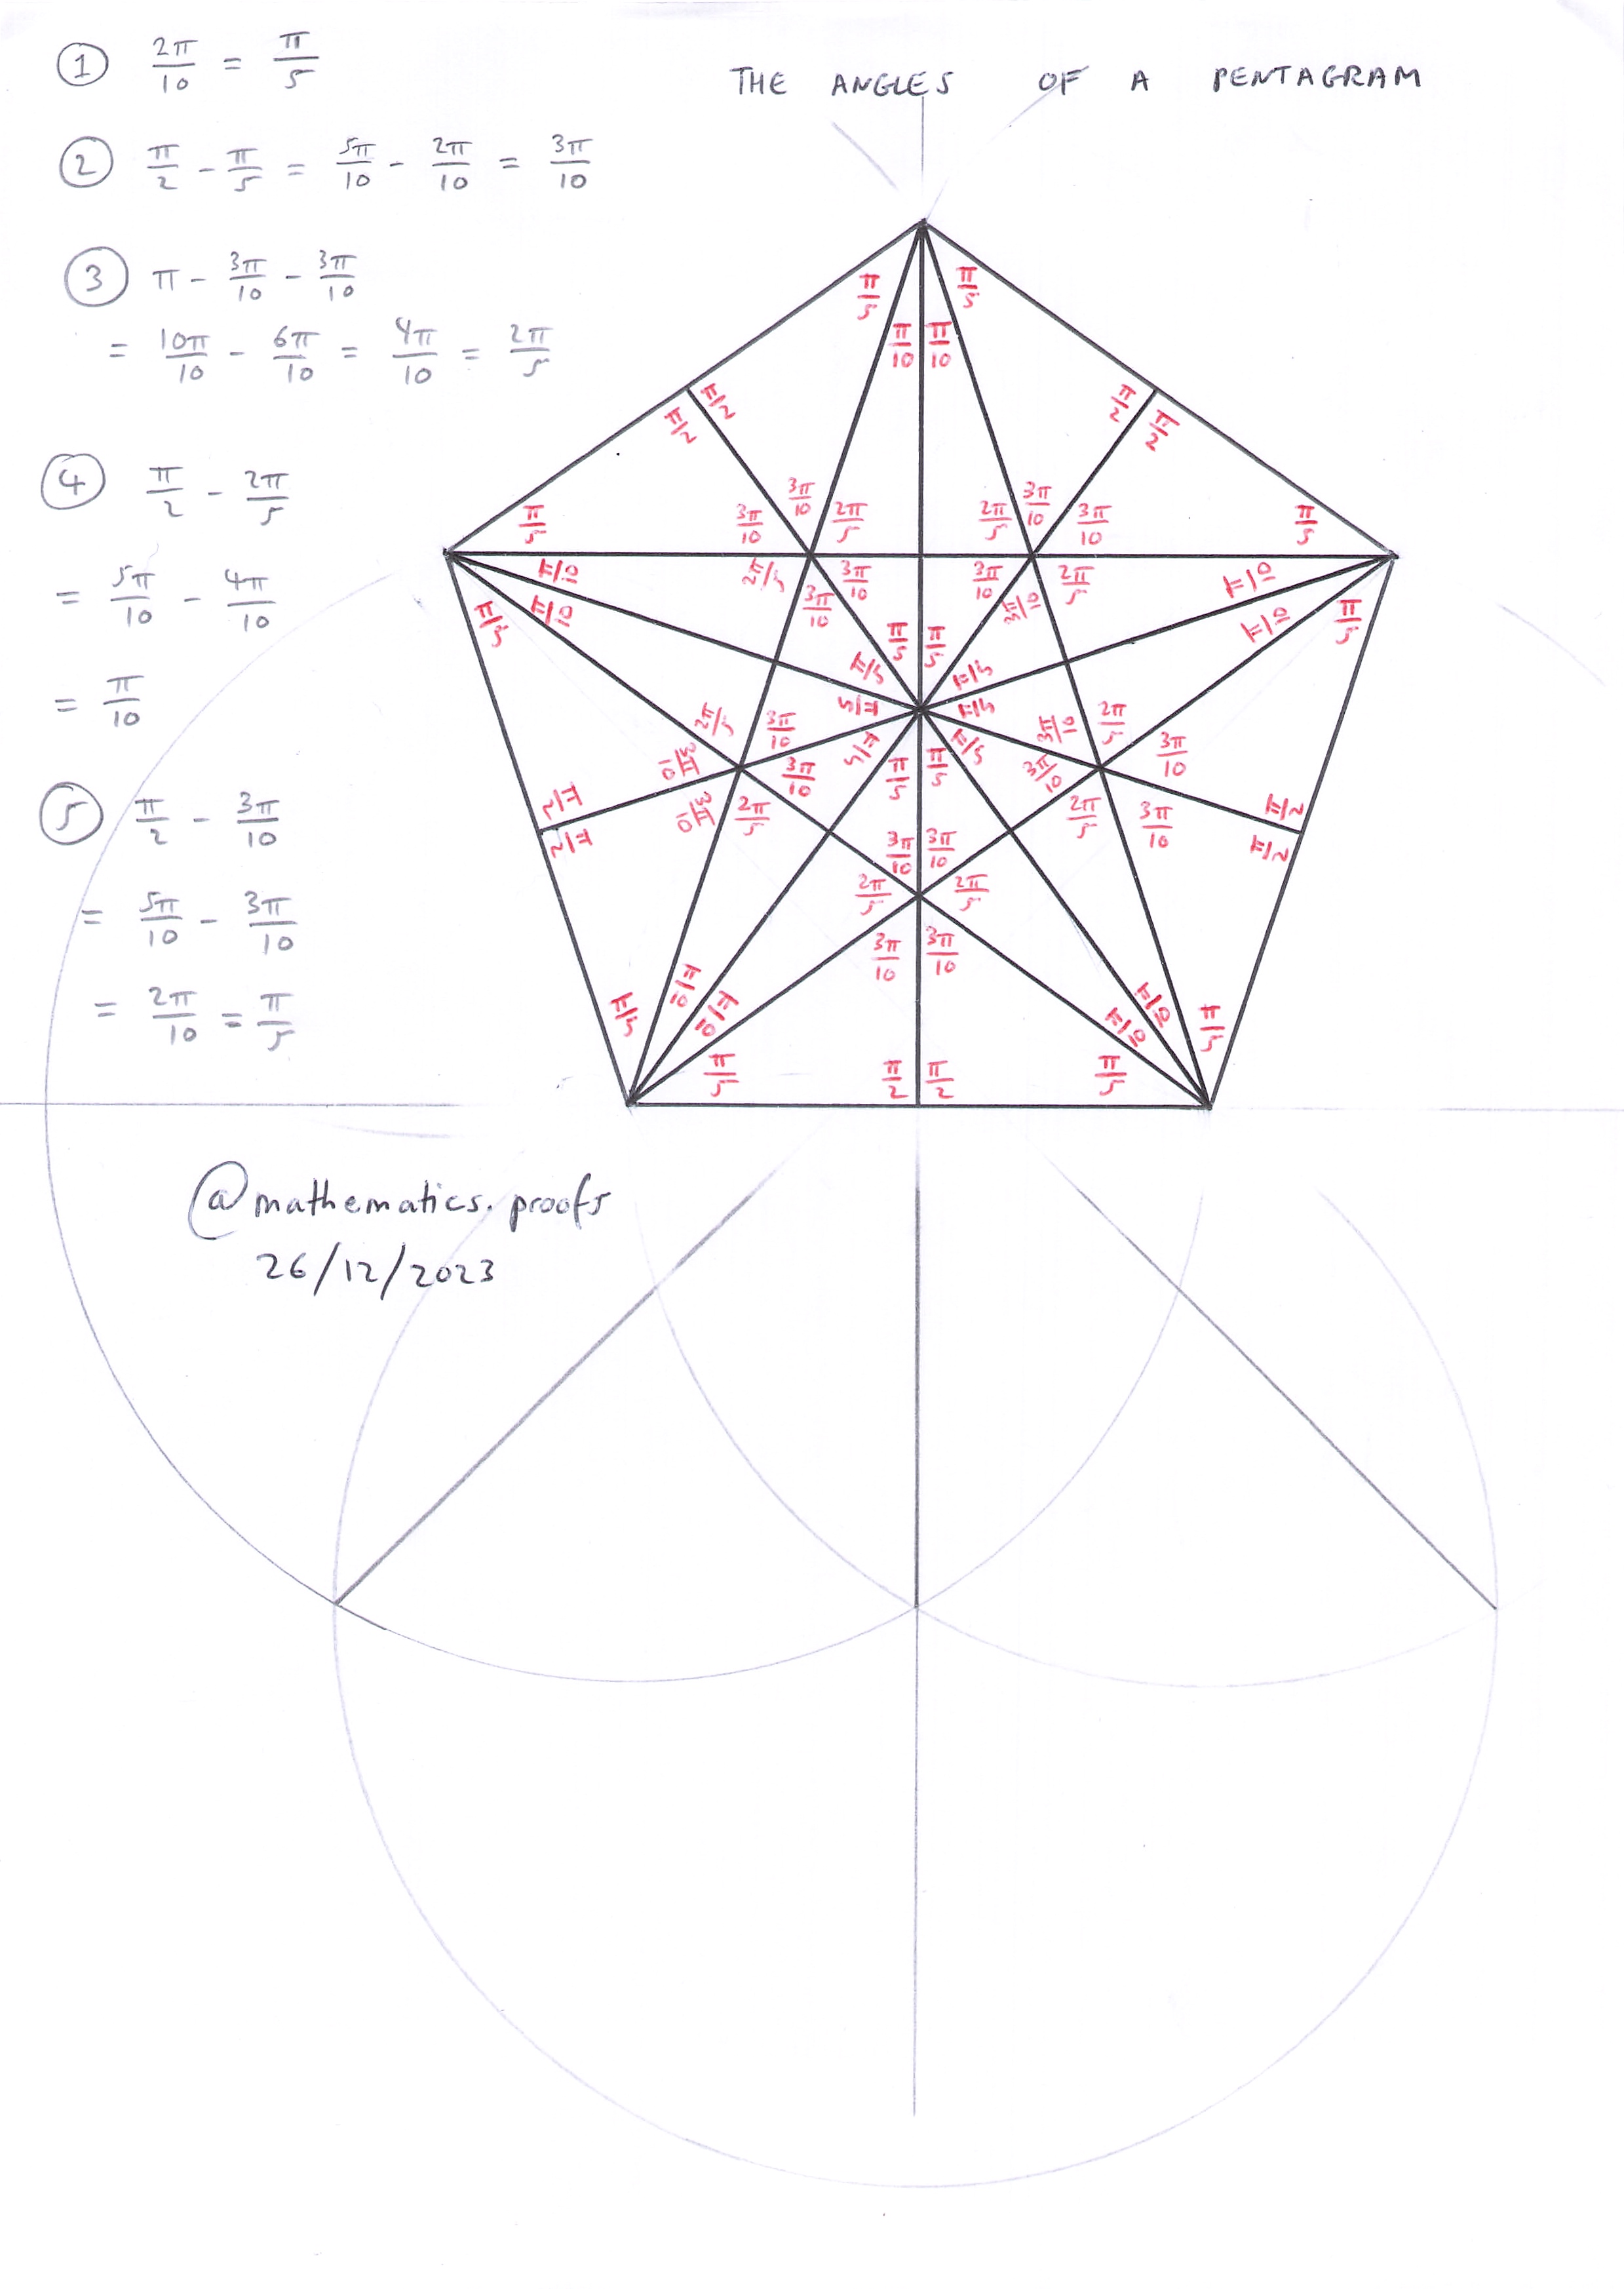 THE ANGLES OF A PENTAGRAM
① 2π/10 = π/5
② π/2 - π/5 = 5π/10 - 2π/10 = 3π/10
③ π - 3π/10 - 3π/10
= 10π/10 - 6π/10 = 4π/10 = 2π/5
④ π/2 - 2π/5
= 5π/10 - 4π/10
= π/10
⑤ π/2 - 3π/10
= 5π/10 - 3π/10
= 2π/10 = π/5
π/5 π/5
π/10 π/10
π/2 π/2 π/2 π/2
3π/10 3π/10 2π/5 2π/5 3π/10 3π/10
π/5 π/5
π/10 2π/5 3π/10 3π/10 2π/5 π/10
π/5 π/10 3π/10 3π/10 π/10 π/5
π/5 π/5
π/5 π/5
π/5 π/5
2π/5 3π/10 3π/10 2π/5
3π/10 π/5 π/5 3π/10
3π/10 π/5 π/5 3π/10
π/2 3π/10 2π/5 2π/5 3π/10 π/2
π/2 3π/10 3π/10 π/2
2π/5 2π/5
3π/10 3π/10
π/5 π/10 π/10 π/5
π/10 π/10
π/5 π/2 π/2 π/5
@mathematics.proofs
26/12/2023